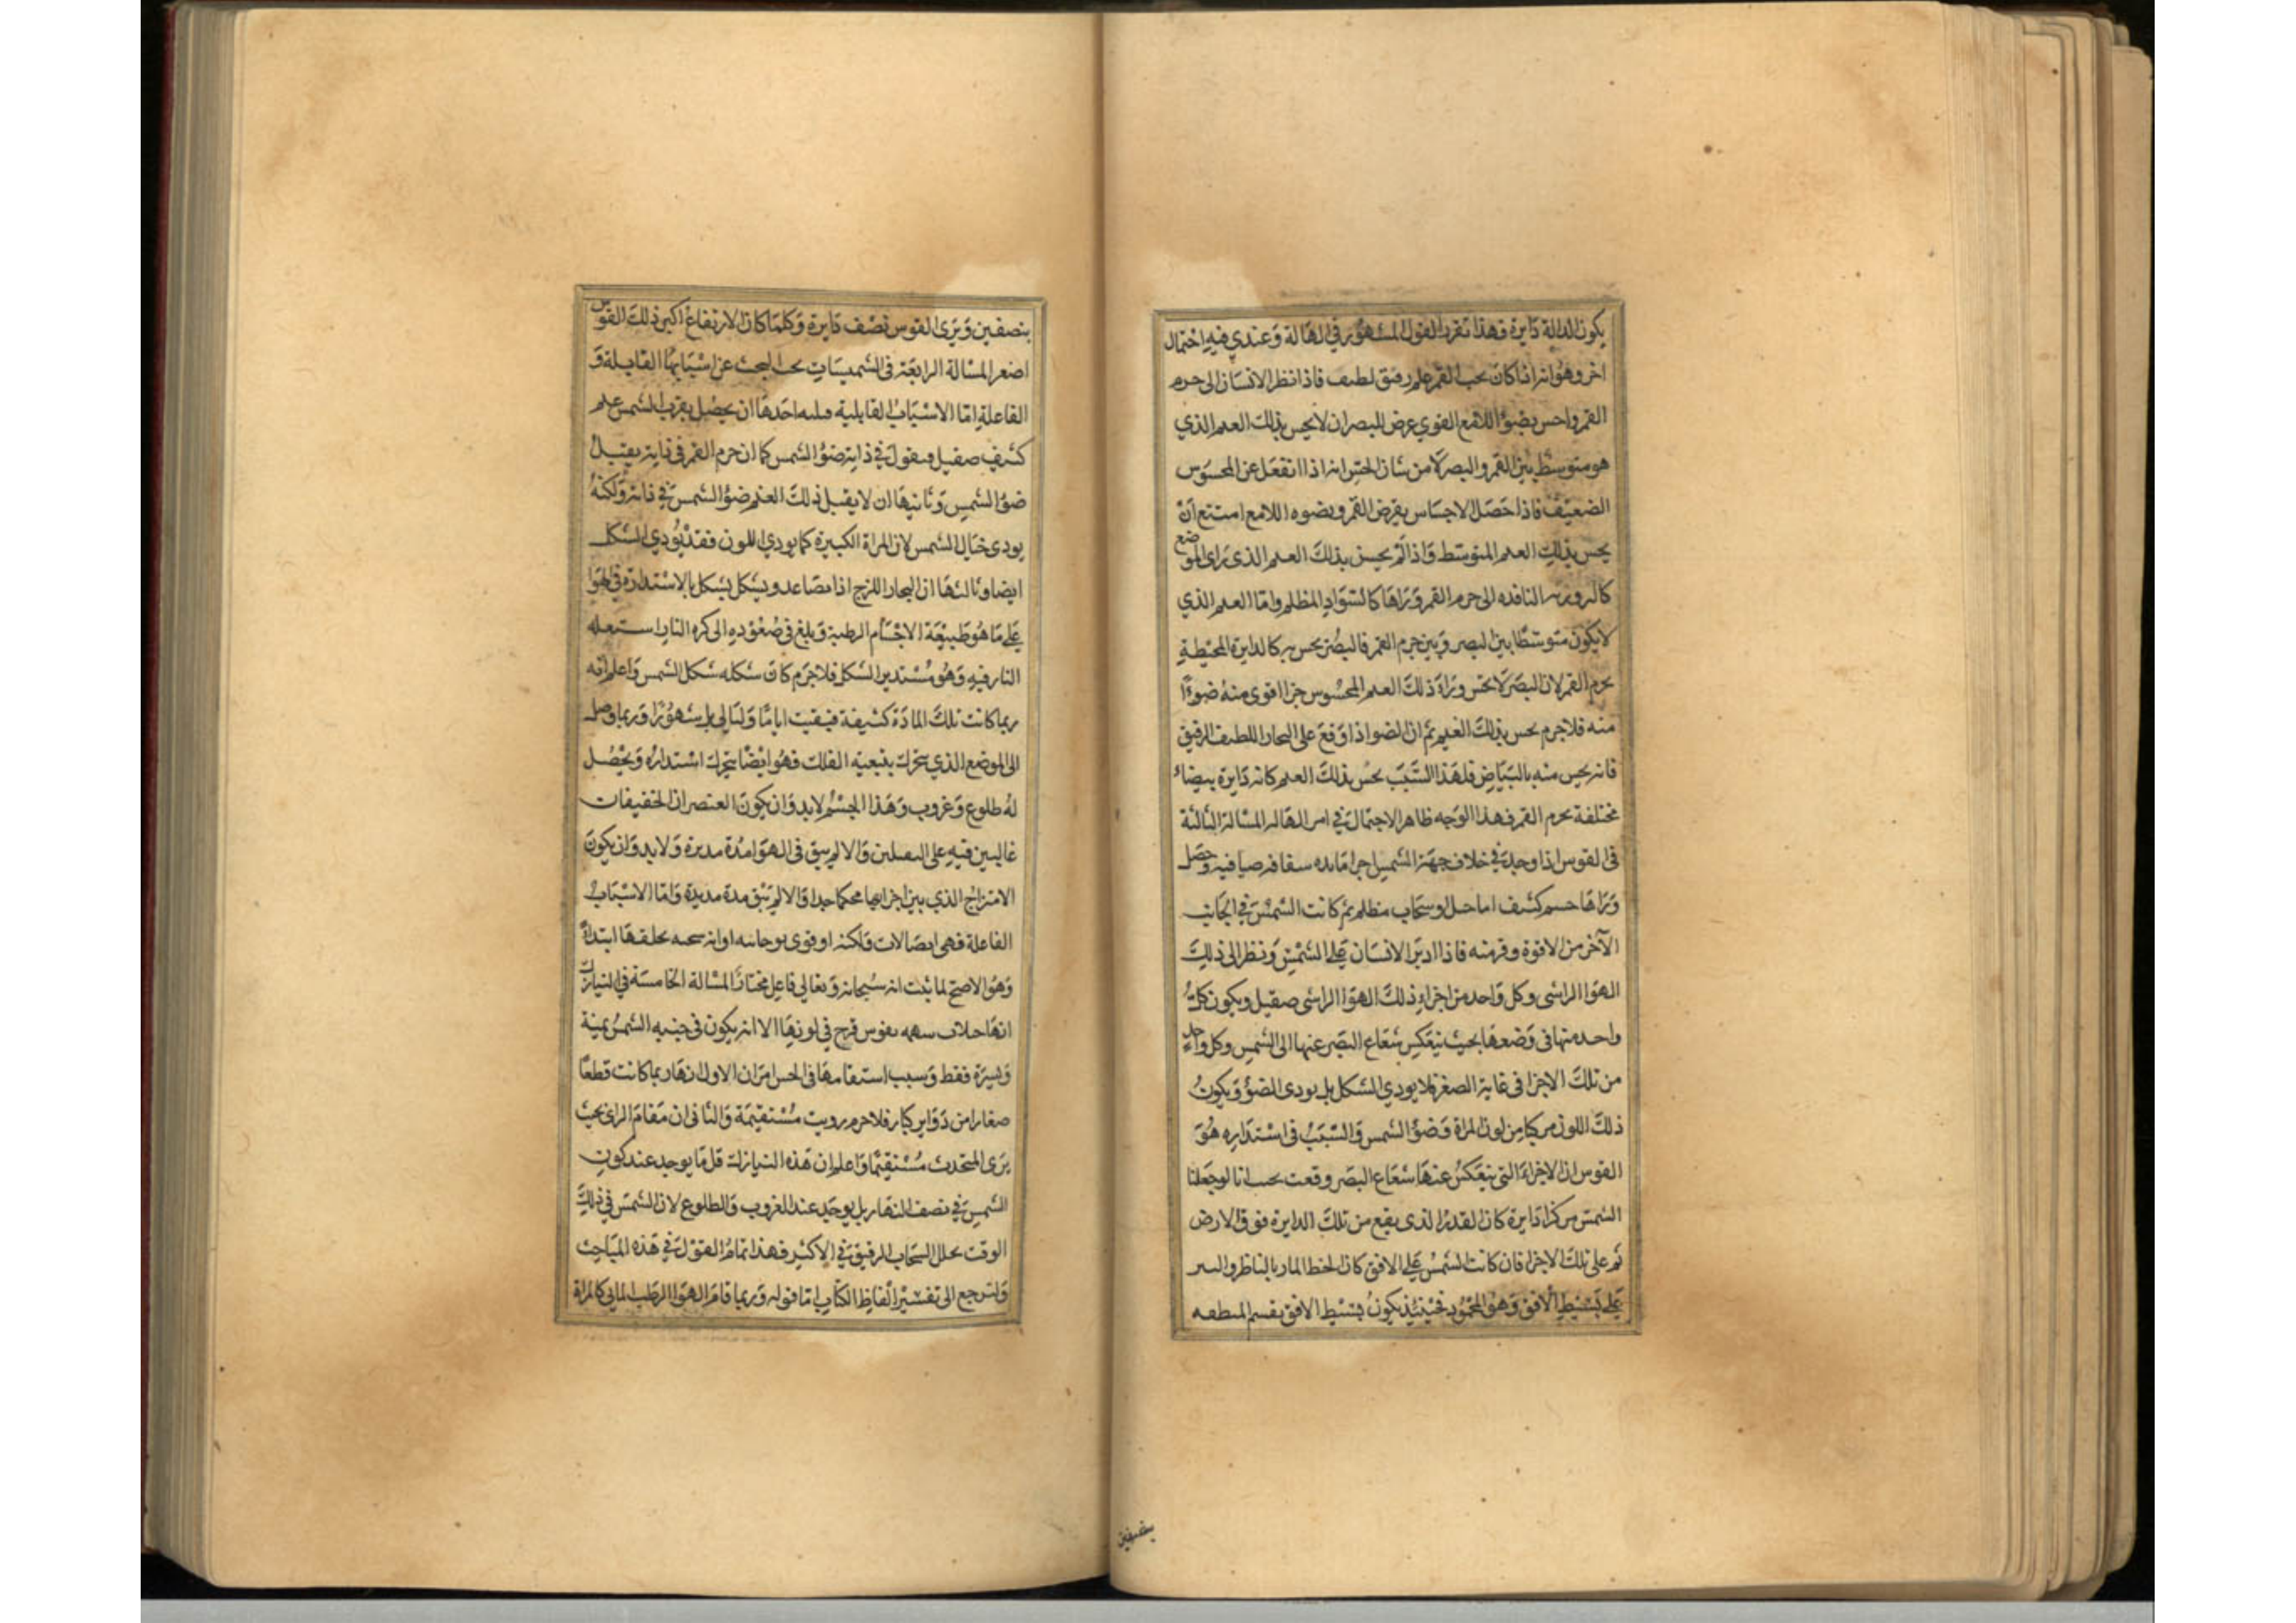 يكون الهالة دايرة فهذا تقرير القول المشهور في الهالة وعندي فيه احتمال
اخر وهو انه اذا كان تحت القمر غيم رقيق لطيف فاذا نظر الانسان الى جرم
القمر واحس بضوؤ اللامع القوي عرض للبصر ان لا يحس بذلك الغيم الذي
هو متوسط بين القمر والبصر لان من شان الحس انه اذا انفعل عن المحسوس
الضعيف فاذا حصل الاحساس بقرض القمر وبضوه اللامع امتنع ان
يحس بذلك الغيم المتوسط واذا لم يحس بذلك الغيم الذي راى الموضع
كالروزنه النافذه الى جرم القمر وراها كالسواد المظلم واما الغيم الذي
لا يكون متوسطا بين البصر وبين جرم القمر فالبصر يحس به كالدايرة المحيطة
بجرم القمر لان البصر لا يحس وراء ذلك الغيم المحسوس جزا اقوى منه ضوءا
منه فلا جرم يحس بذلك الغيم ثم ان الضوا اذا وقع على البخار اللطيف الرقيق
فانه يحس منه بالبياض فلهذا السبب يحس بذلك الغيم كانه دايرة بيضاء
مختلفة بجرم القمر فهذا الوجه ظاهر الاحتمال في امر الهاله المسالة الثالثة
في القوس اذا وجد في خلاف جهة الشمس اجزا مايه شفافه صافيه وحصل
وراها جسم كثيف اما جبل او سحاب مظلم ثم كانت الشمس في الجانب
الآخر من الافق وقريبه فاذا ادبر الانسان على الشمس ونظر الى ذلك
الهوا الراشى وكل واحد من اجزاء ذلك الهوا الراشى صقيل ويكون كل
واحده منها في وضعها بحيث ينعكس شعاع البصر عنها الى الشمس وكل واحد
من تلك الاجزا في غاية الصغر فلا يودي الشكل بل يودى الضوؤ ويكون
ذلك اللون مركبا من لون المراة وضوؤ الشمس والسبب في استداره هو
القوس ان الاجزاء التي ينعكس عنها شعاع البصر وقعت بحيث انا لو جعلنا
الشمس مركز دايرة كان القدر الذى يقع من تلك الدايرة فوق الارض
ثم على تلك الاجزا فان كانت الشمس على الافق كان الخط المار بالناظر والنير
على بسيط الافق وهو المحور فحينئذ يكون بسيط الافق يقسم المنطقه
بنصفين
بنصفين ويرى القوس نصف دايرة وكلما كان الارتفاع اكبر ذلك القوس
اصغر المسالة الرابعة في الشميسات يجب البحث عن اسبابها القابلة و
الفاعلة اما الاسباب القابلية فثلثه احدها ان يحصل بقرب الشمس غيم
كثيف صقيل فيقول في ذاته ضؤ الشمس كما ان جرم القمر في ذاته يقبل
ضوء الشمس وثانيها ان لا يقبل ذلك الغيم ضوؤ الشمس في ذاته ولكنه
يودى خيال الشمس لان المراة الكبيرة كما يودى اللون فقد يودي الشكل
ايضا وثالثها ان البخار اللزج اذا تصاعد ويشكل بشكل بالاستداره في الهوا
على ما هو طبيعة الاجسام الرطبة وبلغ في صعوده الى كره النار استعله
النار فيه وهو مستدير الشكل فلا جرم كان شكله شكل الشمس واعلم انه
ربما كانت تلك المادة كثيفة فبقيت اياما وليالى بل شهورا وربما وصل
الى الموضع الذي يتحرك بتبعية الفلك فهو ايضا يتحرك استدارة ويحصل
له طلوع وغروب وهذا الجسم لا بد وان يكون العنصران الخفيفات
غالبين فيه على الثقيلين والا لم يبق في الهوا مدة مديدة ولا بد وان يكون
الامتزاج الذي بين اجزايها محكما جدا والا لم يبق مدة مديدة واما الاسباب
الفاعلة فهي اتصالات فلكيه او قوى روحانيه او انه سبحانه يخلقها ابتداء
وهو الاصح لما ثبت انه سبحانه وتعالى فاعل مختار المسالة الخامسة في النيازك
انها خلاف شبهه بقوس قزح في لونها الا انه يكون في جنبه الشمس يمنة
ويسرة فقط وسبب استقامتها في الحس امران الاول انها ربما كانت قطعا
صغارا من دواير كبار فلا جرم رويت مستقيمة والثاني ان مقام الراي بحيث
يرى المتحدث مستقيما واعلم ان هذه النيازك قل ما يوجد عند كون
الشمس في نصف النهار بل يوجد عند الغروب والطلوع لان الشمس في ذلك
الوقت يحلل السحاب الرقيق في الاكثر فهذا تمام القول في هذه المباحث
ولنرجع الى تفسير الفاظ الكتاب اما قوله وربما قام الهوا الرطب المائي كالمراة